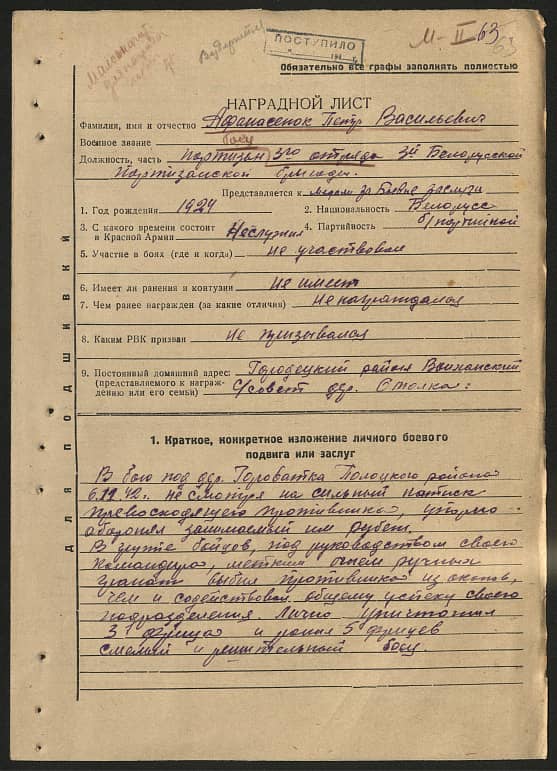 М-II 63
63
ПОСТУПИЛО
Обязательно все графы заполнять полностью
НАГРАДНОЙ ЛИСТ
Фамилия, имя и отчество Афанасенок Петр Васильевич
Военное звание боец
Должность, часть партизан 3го отряда 3й Белорусской
Партизанской бригады.
Представляется к медали за боевые заслуги
1. Год рождения 1924 2. Национальность Белорусс
3. С какого времени состоит в Красной Армии Неслужил 4. Партийность б/партийной
5. Участие в боях (где и когда) не участвовал
6. Имеет ли ранения и контузии не имеет
7. Чем ранее награжден (за какие отличия) Не награждался
8. Каким РВК призван не призывался
9. Постоянный домашний адрес: Городецкий района
(представляемого к награж-
дению или его семьи) с/совет дер.
Для подшивки
1. Краткое, конкретное изложение личного боевого
подвига или заслуг
В бою под дер. Полоцкого района
42г. не смотря на сильный натиск
превосходящего противника, упорно
оборонял занимаемый им рубеж.
В группе бойцов, под руководством своего
командира, метким огнем ручных
гранат выбил противника из окопов,
чем и содействовал общему успеху своего
подразделения. Лично уничтожил
3 фрица и ранил 5 фрицев
смелый и решительный боец